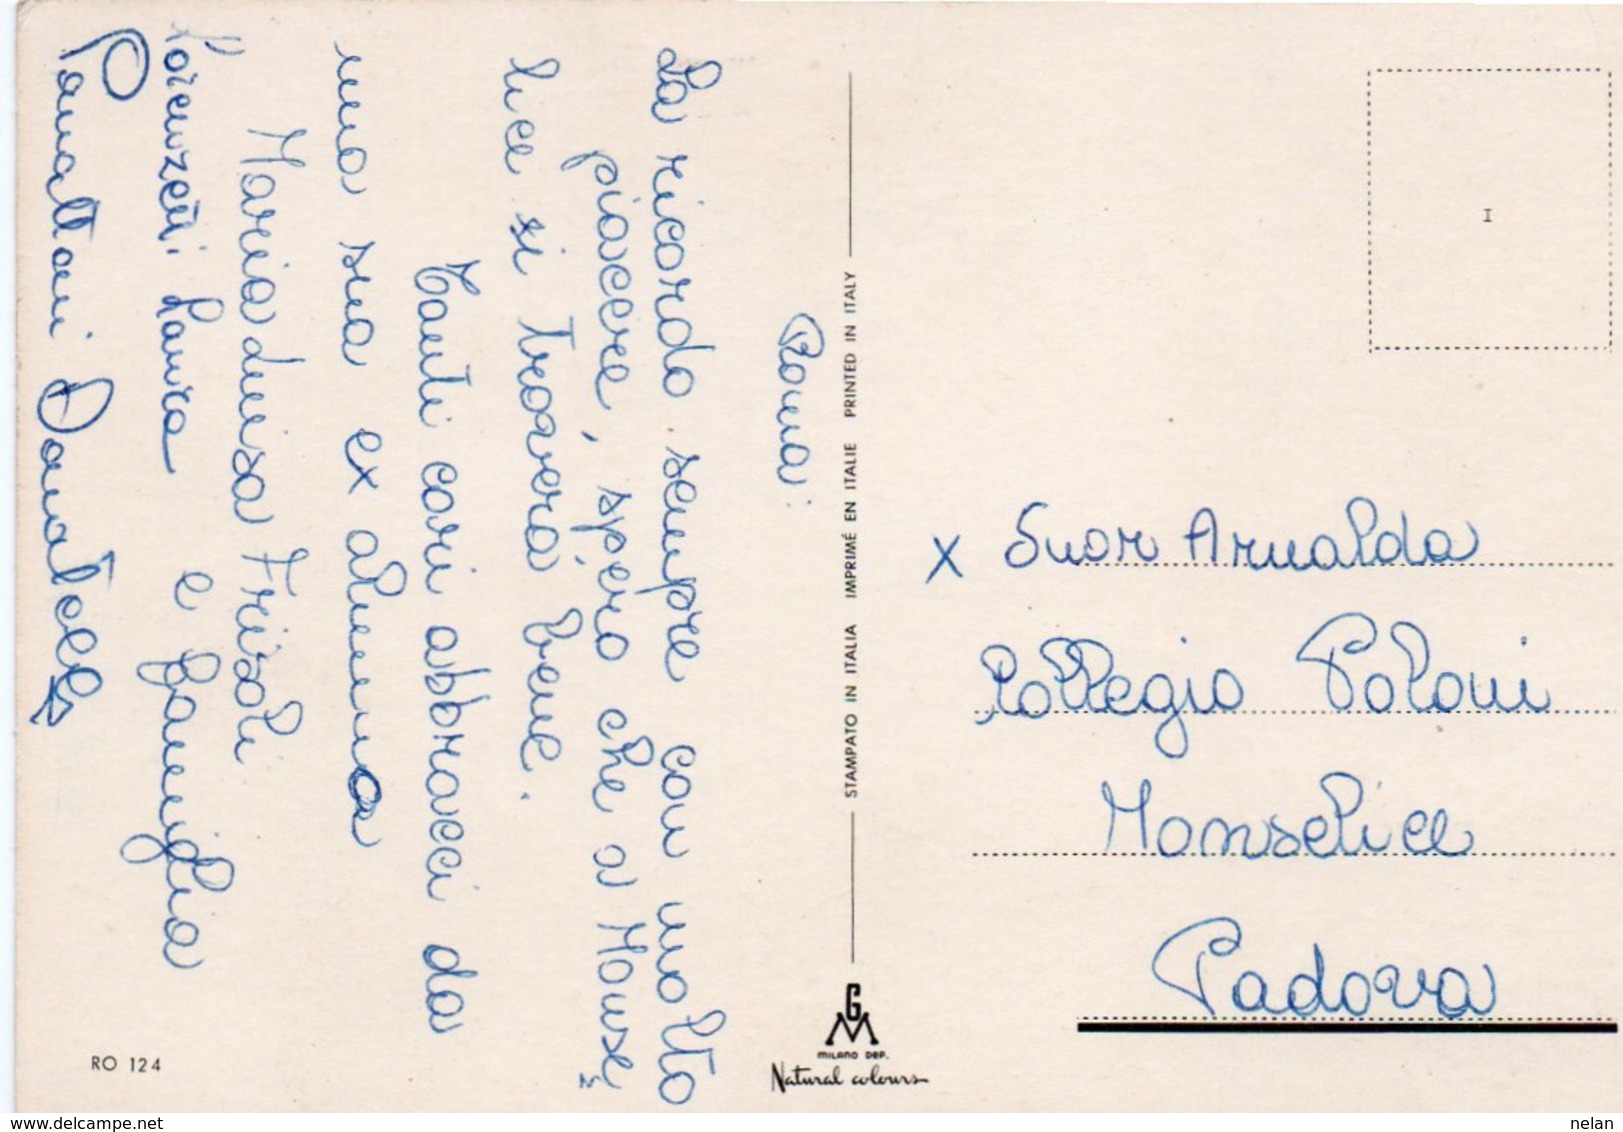 Roma:
La ricordo sempre con molto
piacere, spero che a Monse
lice si troverà bene.
Tanti cari abbracci da
una sua ex alunna
Maria Luisa Frisoli
Lorenzetti Laura e famiglia
Donatella
STAMPATO IN ITALIA IMPRIMÉ EN ITALIE PRINTED IN ITALY
I
X Suor Arnalda
Collegio Poloni
Monselice
Padova
RO 124
GM
MILANO DEP.
Natural colours
www.delcampe.net
nelan